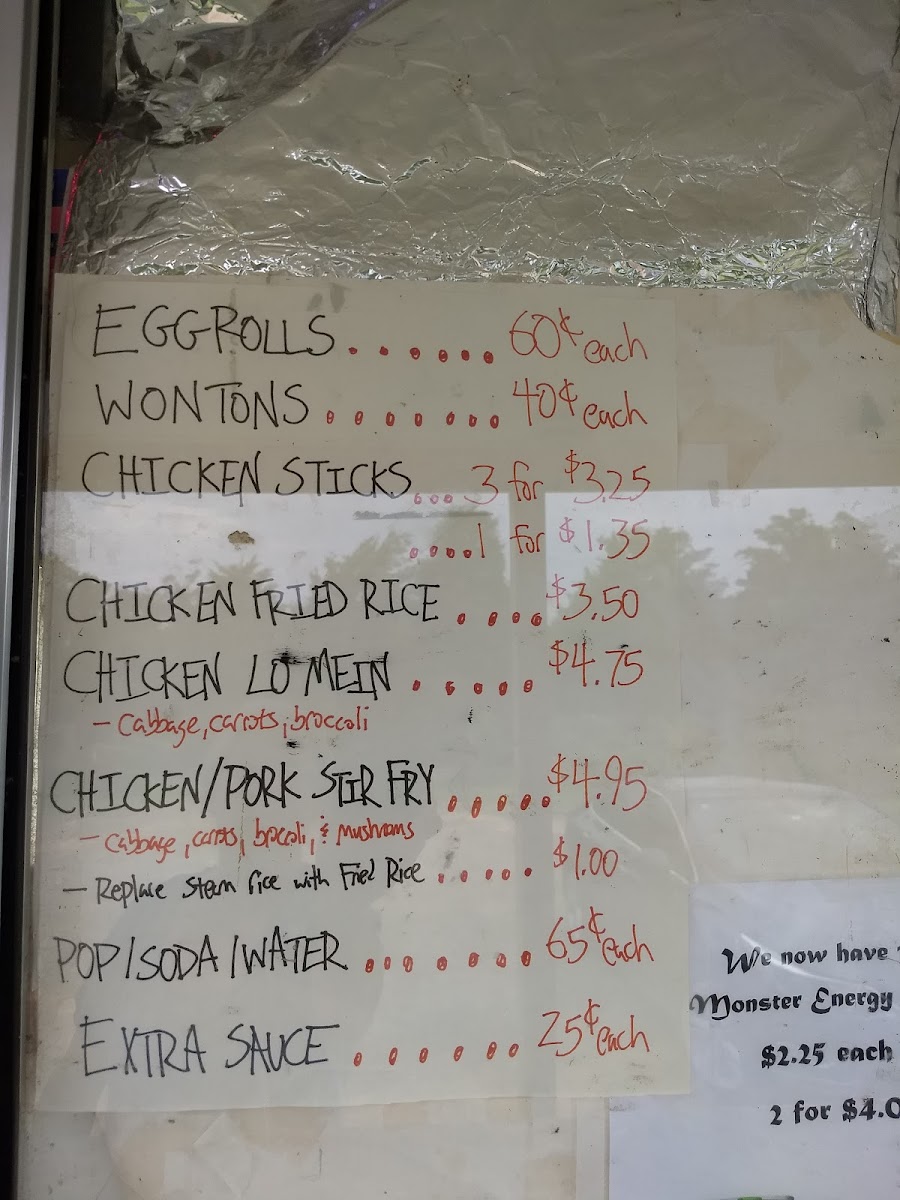 EGGROLLS...... 60¢ each
WONTONS....... 40¢ each
CHICKEN STICKS... 3 for $3.25
....1 for $1.35
CHICKEN FRIED RICE .... $3.50
CHICKEN LO MEIN ..... $4.75
- Cabbage, carrots, broccoli
CHICKEN/PORK STIR FRY ..... $4.95
- Cabbage, carrots, broccoli, & mushrooms
- Replace steam rice with Fried Rice ..... $1.00
POP/SODA/WATER ....... 65¢ each
EXTRA SAUCE ....... 25¢ each
We now have
Monster Energy
$2.25 each
2 for $4.0